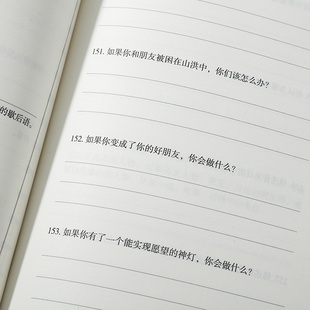 的歇后语。
151. 如果你和朋友被困在山洪中，你们该怎么办？
152. 如果你变成了你的好朋友，你会做什么？
153. 如果你有了一个能实现愿望的神灯，你会做什么？